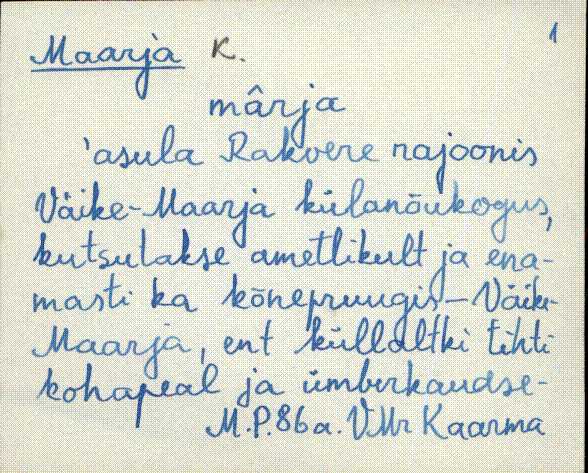 1
Maarja K.
mârja
'asula Rakvere rajoonis
Väike-Maarja külanõukogus,
kutsutakse ametlikult ja ena-
masti ka kõnepruugis - Väike-
Maarja, ent küllaltki tihti
kohapeal ja ümberkaudse-
M.P.86a. VMr Kaarma